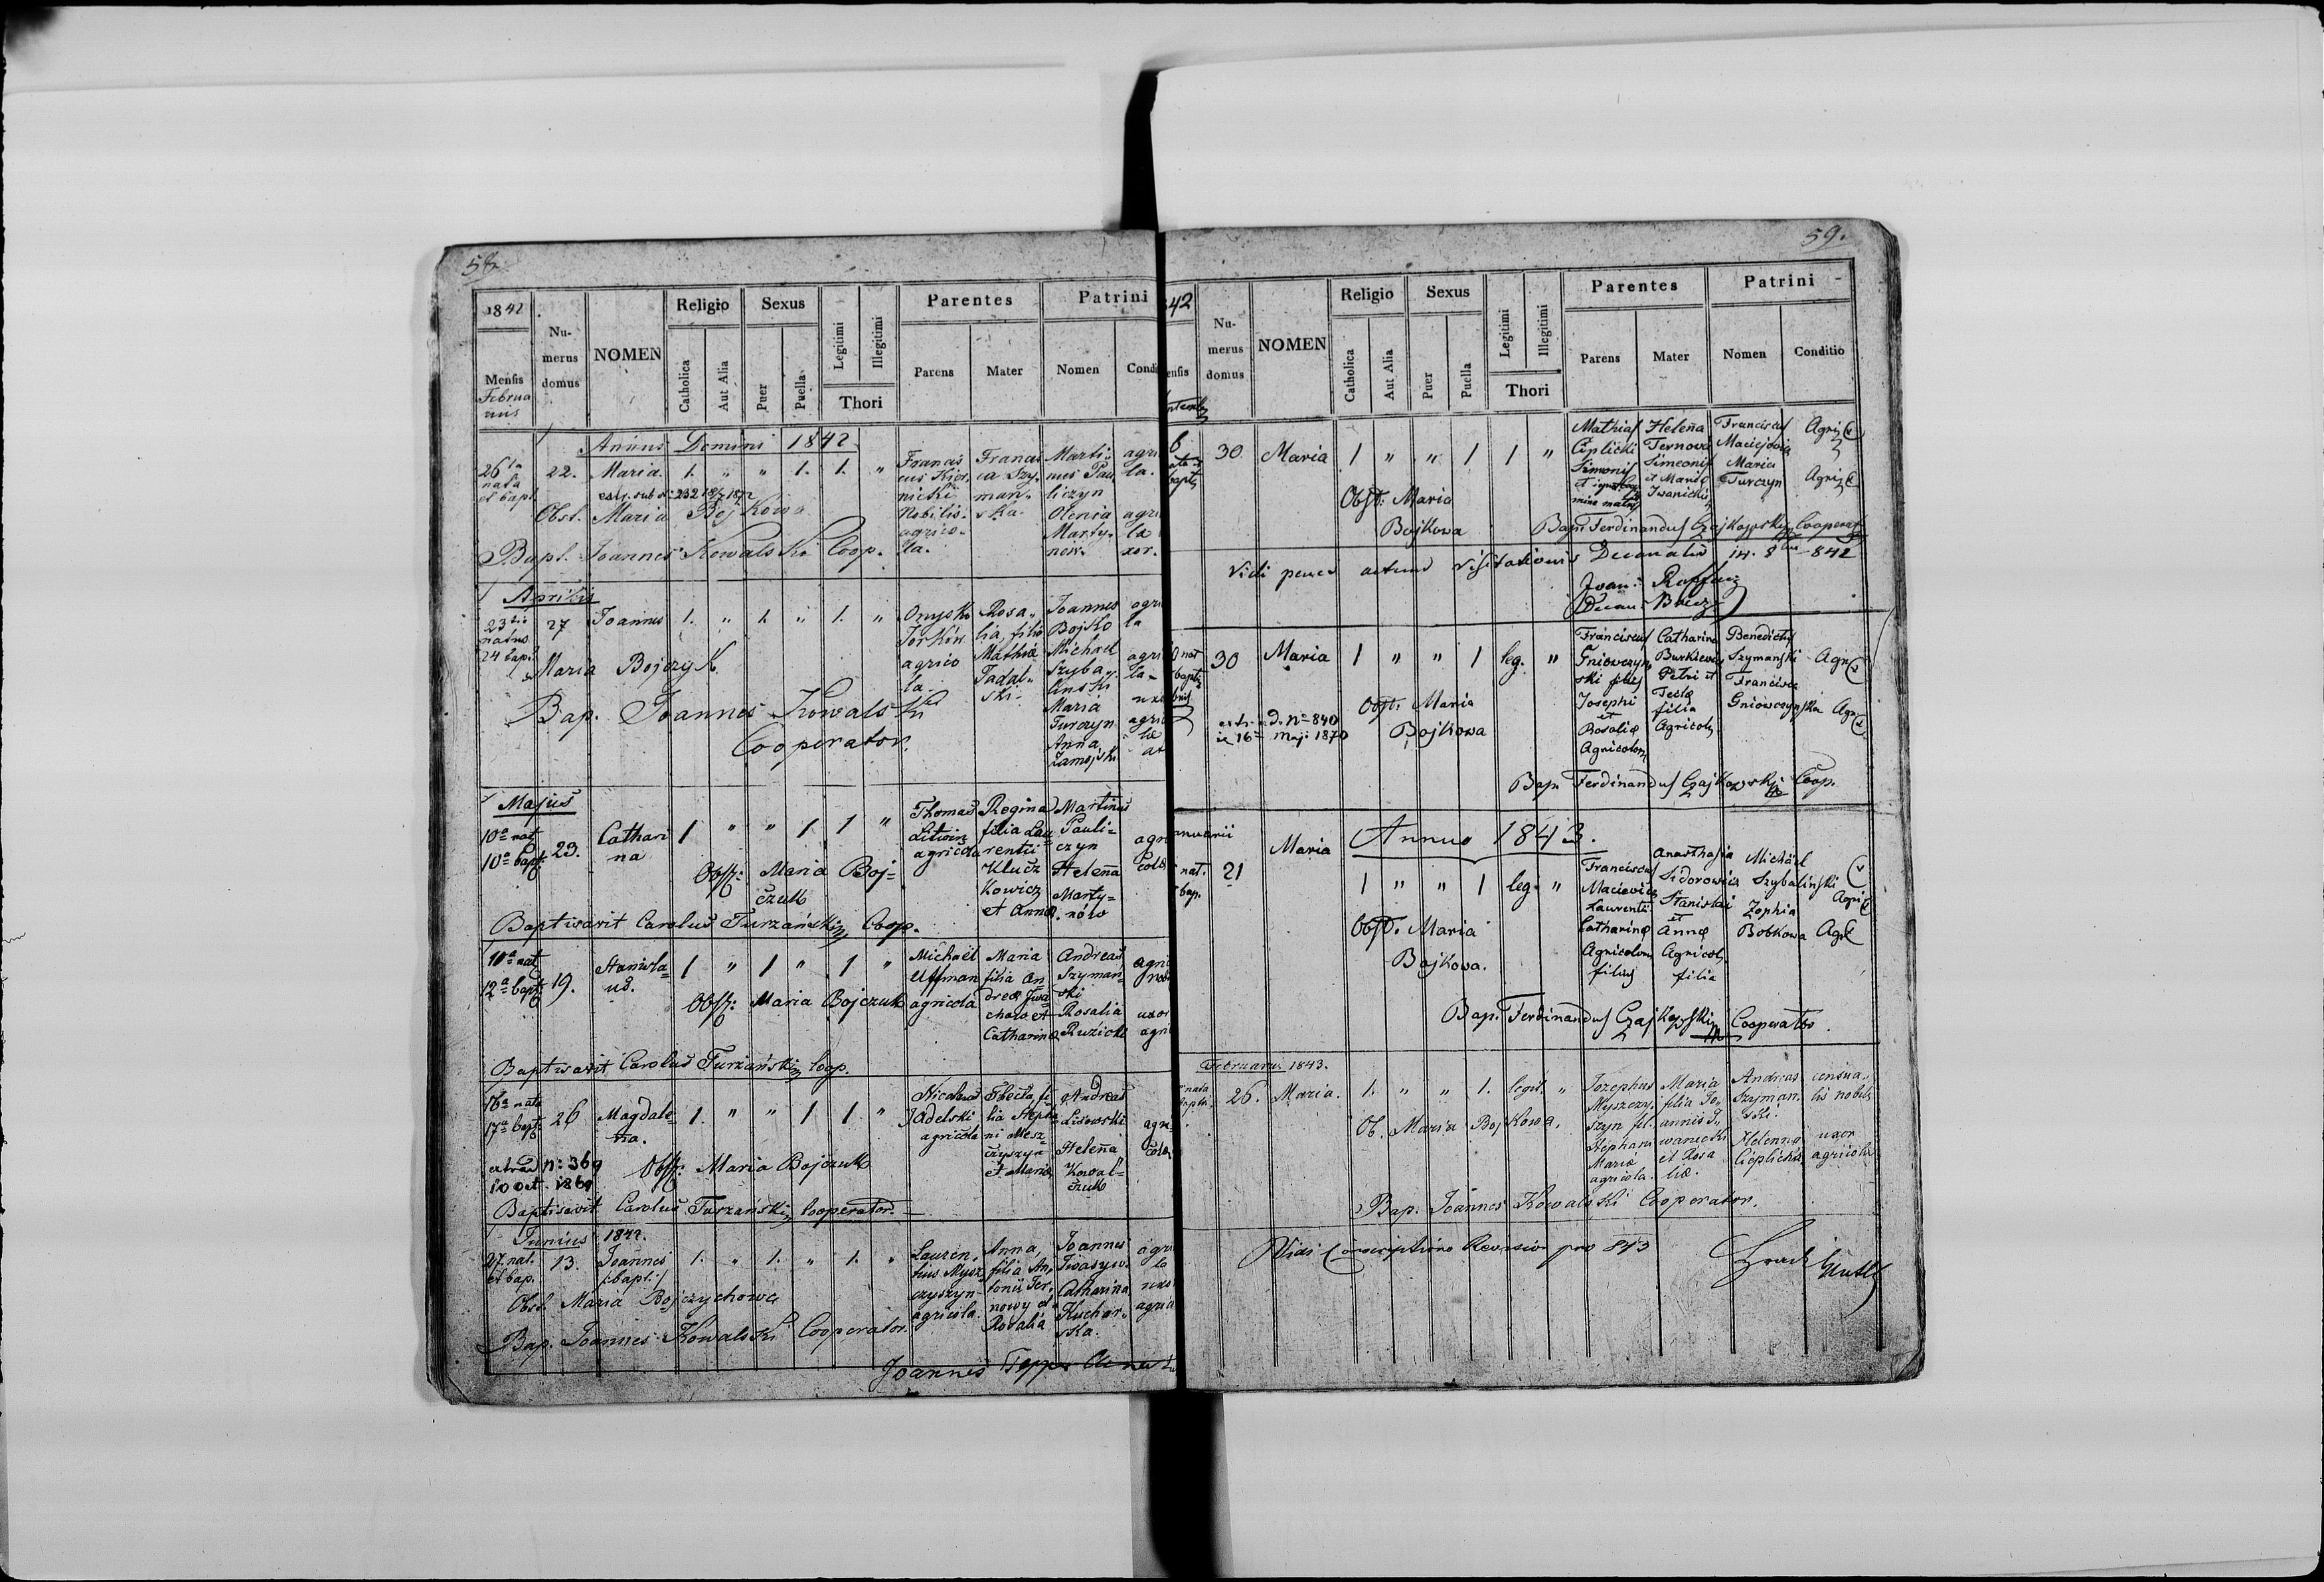 58.
1842
Mensis
Februa
rius
Nu-
merus
domus
NOMEN
Religio
Catholica
Aut Alia
Sexus
Puer
Puella
Legitimi
Illegitimi
Thori
Parentes
Parens
Mater
Patrini
Nomen
Condi
Annus Domini 1842
26ta
nata
et bapt.
22.
Maria.
1. " " 1. 1. "
Francis
cus Kier
nicki
Nobilis
agrico-
la.
Francis
ca Szy-
man-
ska.
Marti-
nus Pau
liczyn
Olenia
Marty-
now.
agri
la.
agri
la
uxor.
Obst. Maria Bojkowa
Bapt. Joannes Kowalski Coop.
Aprilis
23tio
natus
24 bapt.
27
Joannes
1. " 1. " 1. "
Onysko
agrico
la
Rosa-
lia, filia
Mathia
Tadal-
ski.
Joannes
Bojko
Michael
Szyba-
linski
Maria
Turczyn
Anna
Zamojski
agri
la
agri
la-
uxo
agri
Maria Bojczyk
Bap. Joannes Kowalski
Cooperator.
Majus
10a nat
10a bapt.
23.
Cathari
na
1 " " 1 1 "
Thomas
Litwin
agricola
Regina
filia Lau
rentii
Klucz
kowicz
et Anna.
Martinus
Pauli=
czyn
Helena
Marty=
nów
agri
colæ
Obst: Maria Boj=
czuk
Baptisavit Carolus Turzański Coop.
11a nat
12a bapt.
19.
Stanisla-
us.
1 " 1 " 1 "
Michael
Uffman
agricola
Maria
filia An
dreæ Iwa
chow et
Catharinæ
Andreas
Szymań
ski
Rosalia
Ruzicki
agri
uxor
agri
Obst: Maria Bojczuk
Baptisavit Carolus Turzański Coop.
16a nata
17a bapt.
26
Magdale-
na.
1. " " 1 1 "
Nicolaus
Jadelski
agricola
Thecla fi-
lia Stepha
ni Mesz-
czyszyn
et Mariæ
Andreas
Lisowski
Helena
Kowal=
czuk
agri
colæ
extrad n: 369
10 Oct. 1869
Obst: Maria Bojczuk
Baptisavit Carolus Turzański Cooperator.
Junius 1842.
27 nat.
et bap.
13.
Joannes
/:bapt:/
1. " 1. " 1. "
Lauren-
tius Mysz
czyszyn
agricola.
Anna,
filia An-
tonii Ter-
nowy et
Rosalia
Joannes
Iwasyw.
Catharina
Kuchar-
ska.
agri
la
uxo
agric
Obst. Maria Bojczychowa
Bap. Joannes Kowalski Cooperator.
59.
42
ensis
Nu-
merus
domus
NOMEN
Religio
Catholica
Aut Alia
Sexus
Puer
Puella
Legitimi
Illegitimi
Thori
Parentes
Parens
Mater
Patrini
Nomen
Conditio
30
Maria
1 " " 1 1 "
Mathias
Cieplicki
Simonis
Helena
Ternova
Simeonis
et Mariæ
Iwanicki
Franciscus
Maciejowicz
Maria
Turczyn
Agri
Agri
Obst: Maria
Bojkowa
Bap: Ferdinandus Czajkowski Cooperat
Vidi penes actum Visitationis Decanalis 14. 8bris 842
30
Maria
1 " " 1 leg. "
Franciscus
Gniowczyn
ski filius
Josephi
et
Rosaliæ
Agricolon
Catharina
Burkiewicz
Petri et
Teclæ
filia
Agricol
Benedictus
Szymanski
Francisca
Gniowczynska
Agri
Agri
Obst: Maria
Bojkowa
extr. ad. No 840
16 Maji 1870
Bap: Ferdinandus Czajkowski Coop.
anuarii
Annus 1843.
nat.
bap.
21
Maria
1 " " 1 leg. "
Franciscus
Maciewicz
Laurentii
Catharinæ
Agricolon
filius
Anasthasia
Sidorowicz
Stanislai
et
Annæ
Agricol
filia
Michael
Szybalinski
Zophia
Bobkowa
Agri
Agri
Obst. Maria
Bojkowa.
Bap: Ferdinandus Czajkowski Cooperator.
Februarii 1843.
nata
26.
Maria.
1. " " 1. legit. "
Josephus
Myszczy-
szyn fil.
Stephani
Mariæ
agricola.
Maria
filia Jo-
annis I-
wanicki
et Rosa
liæ.
Andreas
Szyman-
ski.
Helenna
Cieplicka
censua-
lis nobilis
uxor
agricolæ
Ob. Maria Bojkowa.
Bap. Joannes Kowalski Cooperator.
Vidi Conscriptions Revision pro 843